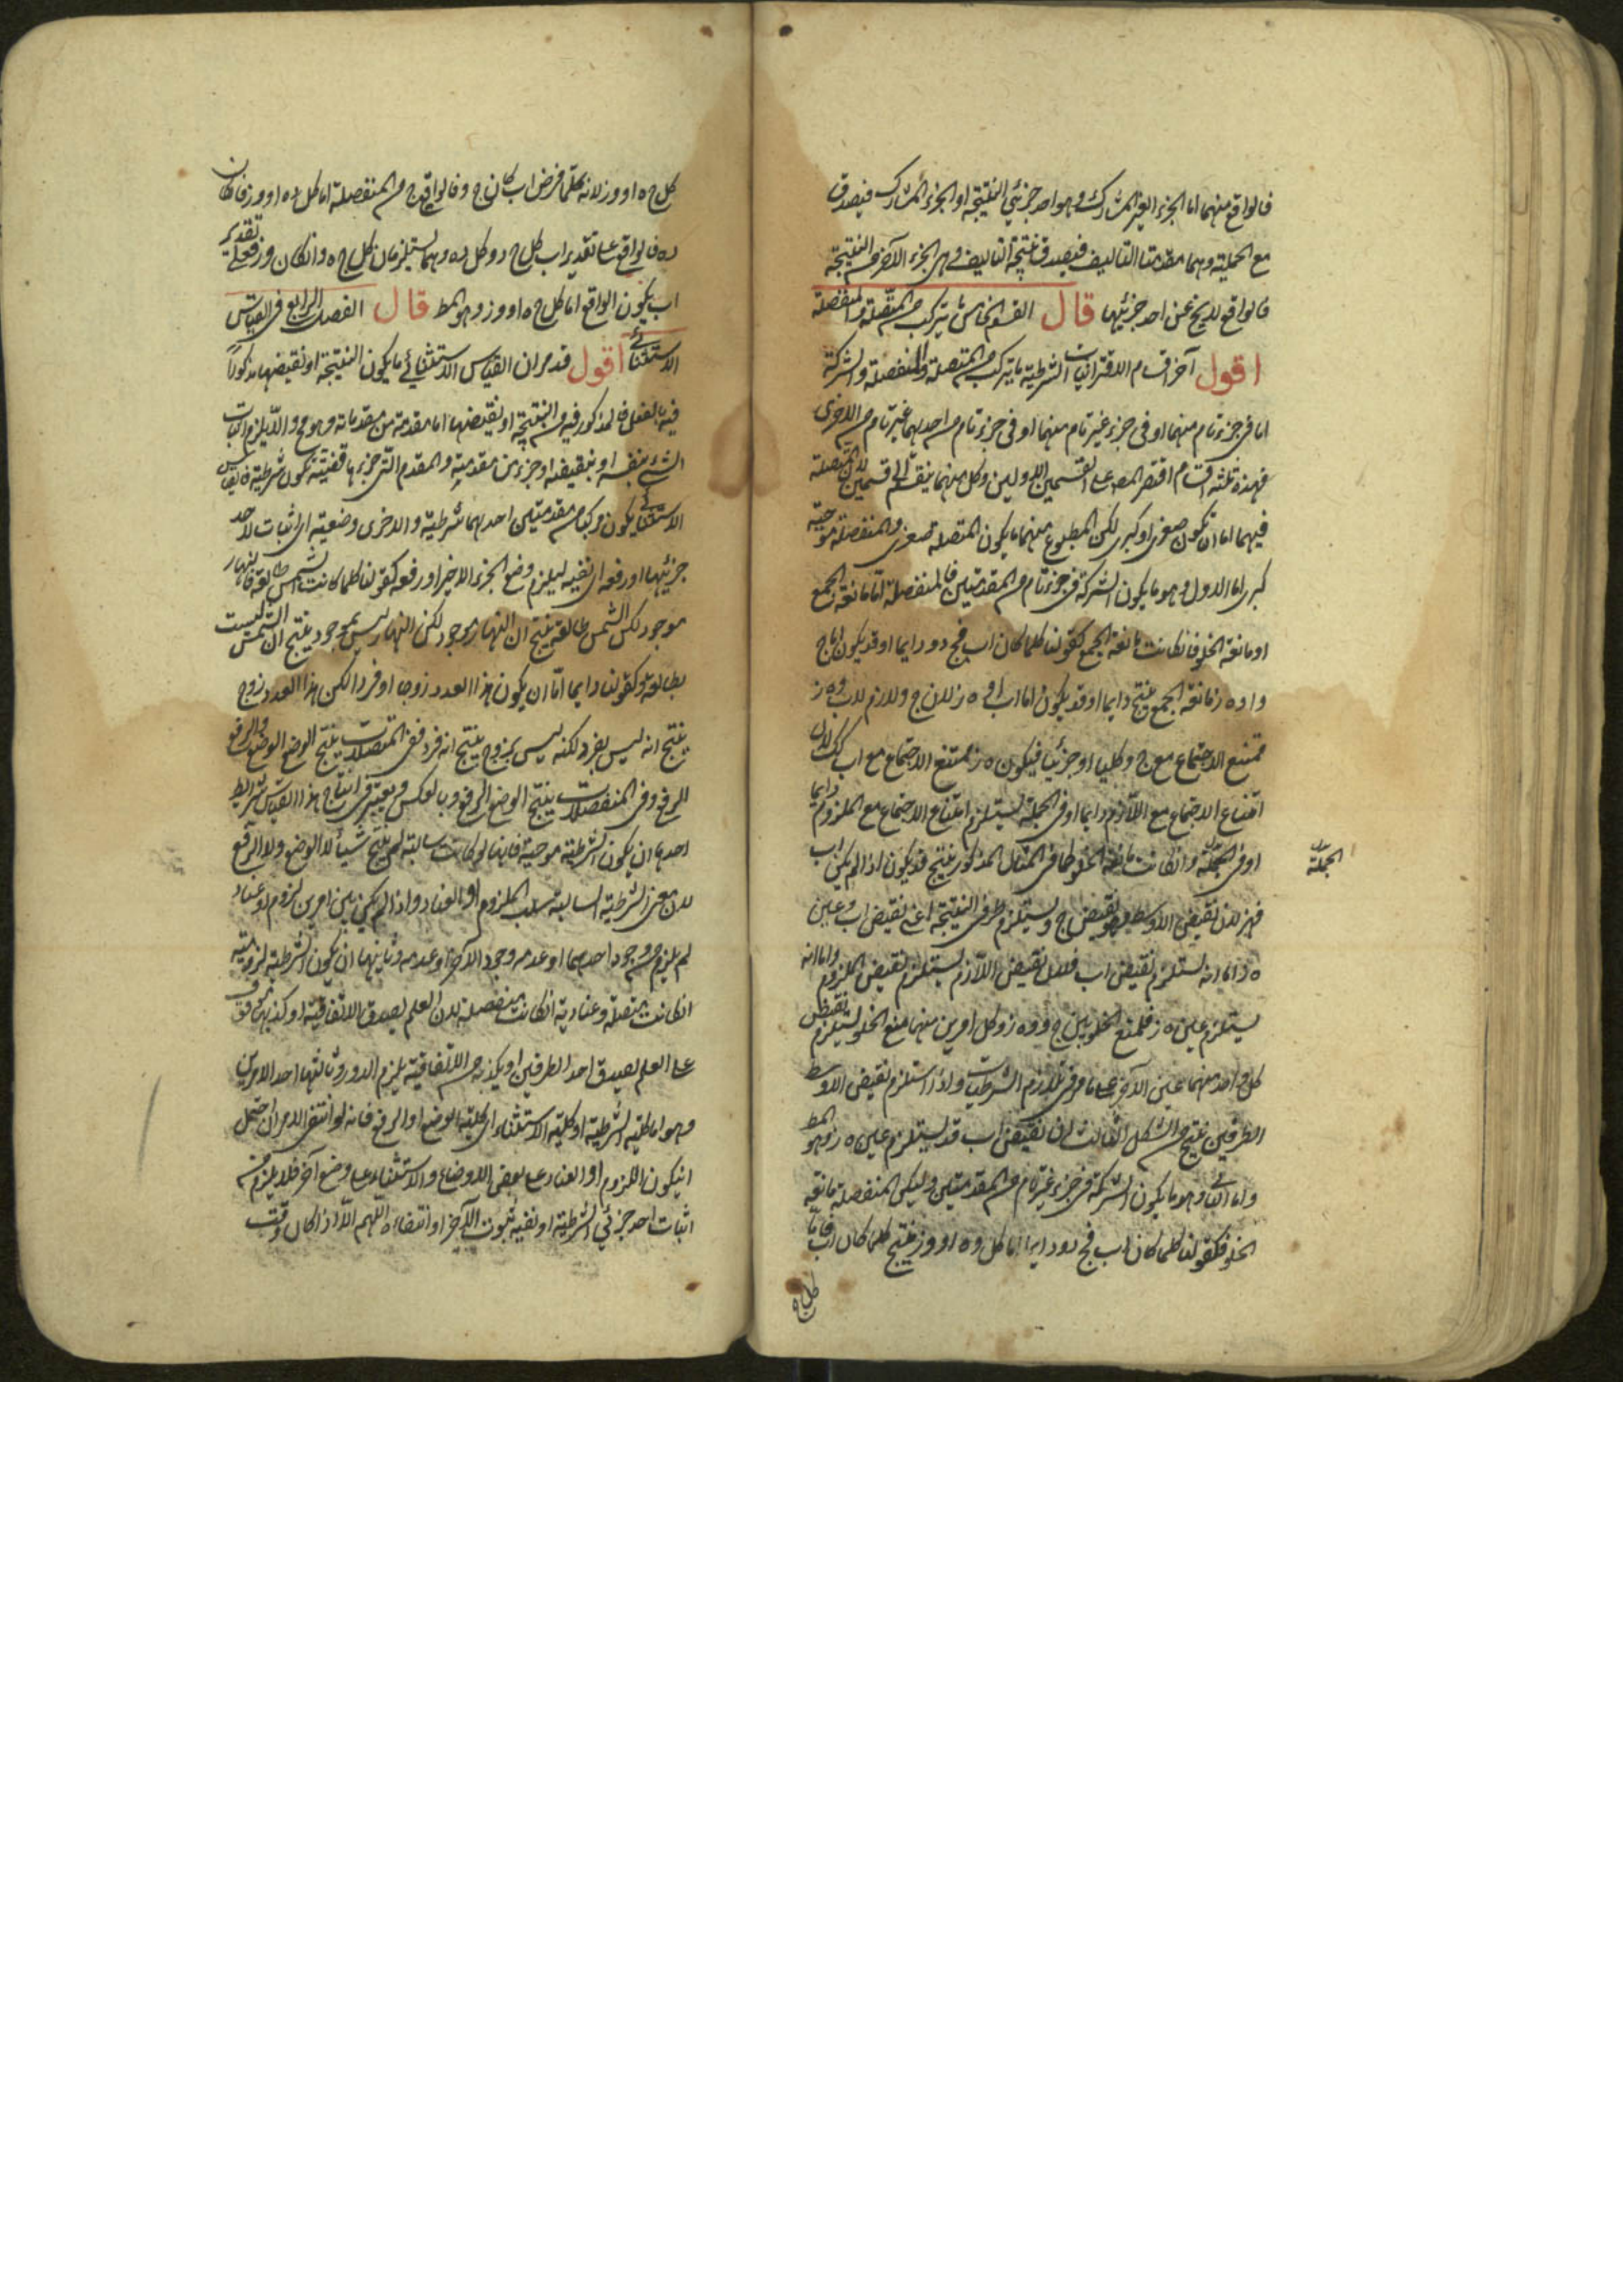 فالواقع منهما اما الجزء الغير المشارك وهو احد جزئي النتيجة او الجزء المشارك فيصدق
مع الحملية وهما مقدمتا التاليف فيصدق نتيجة التاليف وهي الجزء الآخر من النتيجة
فالواقع لا يخ عن احد جزئيها قال القسم الخامس ما يتركب من المتصلة والمنفصلة
اقول آخر اقسام الاقترانيات الشرطية ما يتركب من المتصلة والمنفصلة والشركة
اما في جزء تام منهما او في جزء غير تام منهما او في جزء تام من احديهما غير تام من الاخرى
فهذه ثلثة اقسام اقتصر المصـ على القسمين الاولين وكل منهما ينقسم الى قسمين لان المتصلة
فيهما اما ان تكون صغرى او كبرى لكن المطبوع منهما ما يكون المتصلة صغرى والمنفصلة موجبة
كبرى اما الاول وهو ما يكون الشركة في جزء تام من المقدمتين فالمنفصلة اما مانعة الجمع
او مانعة الخلو فانكانت مانعة الجمع كقولنا كلما كان اب فج د ودايما او قد يكون اما ج
د او ه ز مانعة الجمع ينتج دايما او قد يكون اما اب او ه ز لان ج د لازم لاب و ه ز
ممتنع الاجتماع مع ج د كليا او جزئيا فيكون ه ز ممتنع الاجتماع مع اب كك لان
امتناع الاجتماع مع اللازم دايما او في الجملة يستلزم امتناع الاجتماع مع الملزوم دايما
او في الجملة وانكانت مانعة الخلو كما في المثال المذكور ينتج قد يكون اذا لم يكن اب
الجملة
فه ز لان نقيض الاوسط وهو نقيض ج د يستلزم طرفي النتيجة اعني نقيض اب وعين
ه ز اما انه يستلزم نقيض اب فلان نقيض اللازم يستلزم نقيض الملزوم واما انه
يستلزم عين ه ز فلمنع الخلو بين ج د و ه ز وكل امرين منهما منع الخلو يستلزم نقيض
كل واحد منهما عين الآخر على ما مر في تلازم الشرطيات واذا استلزم نقيض الاوسط
الطرفين ينتج من الشكل الثالث ان نقيض اب قد يستلزم عين ه ز وهو المط
واما الثاني وهو ما يكون الشركة في جزء غير تام من المقدمتين وليكن المنفصلة مانعة
الخلو فكقولنا كلما كان اب فج د ودايما اما كل د ه او و ز ينتج كلما كان اب فاما
كل ج ه
كل ج ه او و ز لانه كلما فرض اب كان ج د فالواقع من المنفصلة اما كل د ه او و ز فان كان
د ه فالواقع على تقدير اب كل ج د وكل د ه وهما يستلزمان كل ج ه وانكان و ز فعلى تقدير
اب يكون الواقع اما كل ج ه او و ز وهو المط قال الفصل الرابع في القياس
الاستثنائي اقول قد مر ان القياس الاستثنائي ما يكون النتيجة او نقيضها مذكورا
فيه بالفعل فالمذكور فيه من النتيجة او نقيضها اما مقدمة من مقدماته وهو مح والا يلزم اثبات
الشئ بنفسه او بنقيضه او جزء من مقدمة والمقدمة التي جزءها قضية تكون شرطية فالقياس
الاستثنائي يكون مركبا من مقدمتين احديهما شرطية والاخرى وضعية اي اثبات لاحد
جزئيها او رفعه اي نفيه ليلزم وضع الجزء الاخر او رفعه كقولنا كلما كانت الشمس طالعة فالنهار
موجود لكن الشمس طالعة ينتج ان النهار موجود لكن النهار ليس بموجود ينتج ان الشمس ليست
بطالعة وكقولنا دايما اما ان يكون هذا العدد زوجا او فردا لكن هذا العدد زوج
ينتج انه ليس بفرد لكنه ليس بزوج ينتج انه فرد ففي المتصلات ينتج الوضع الوضع والرفع
الرفع وفي المنفصلات ينتج الوضع الرفع وبالعكس ويعتبر في انتاج هذا القياس شرائط
احدها ان يكون الشرطية موجبة فانها لو كانت سالبة لم ينتج شيئا لا الوضع ولا الرفع
لان معنى الشرطية السالبة سلب اللزوم او العناد واذا لم يكن بين امرين لزوم او عناد
لم يلزم من وجود احدهما او عدمه وجود الآخر او عدمه وثانيها ان يكون الشرطية لزومية
انكانت متصلة وعنادية انكانت منفصلة لان العلم بصدق الاتفاقية او كذبها موقوف
على العلم بصدق احد الطرفين او بكذبه من الاتفاقية يلزم الدور وثالثها احد الامرين
وهو اما كلية الشرطية او كلية الاستثناء اي كلية الوضع او الرفع فانه لو انتفى الامران احتمل
ان يكون اللزوم او العناد على بعض الاوضاع والاستثناء على وضع آخر فلا يلزم من
اثبات احد جزئي الشرطية او نفيه ثبوت الآخر او انتفاءه اللهم الا اذا كان وقت